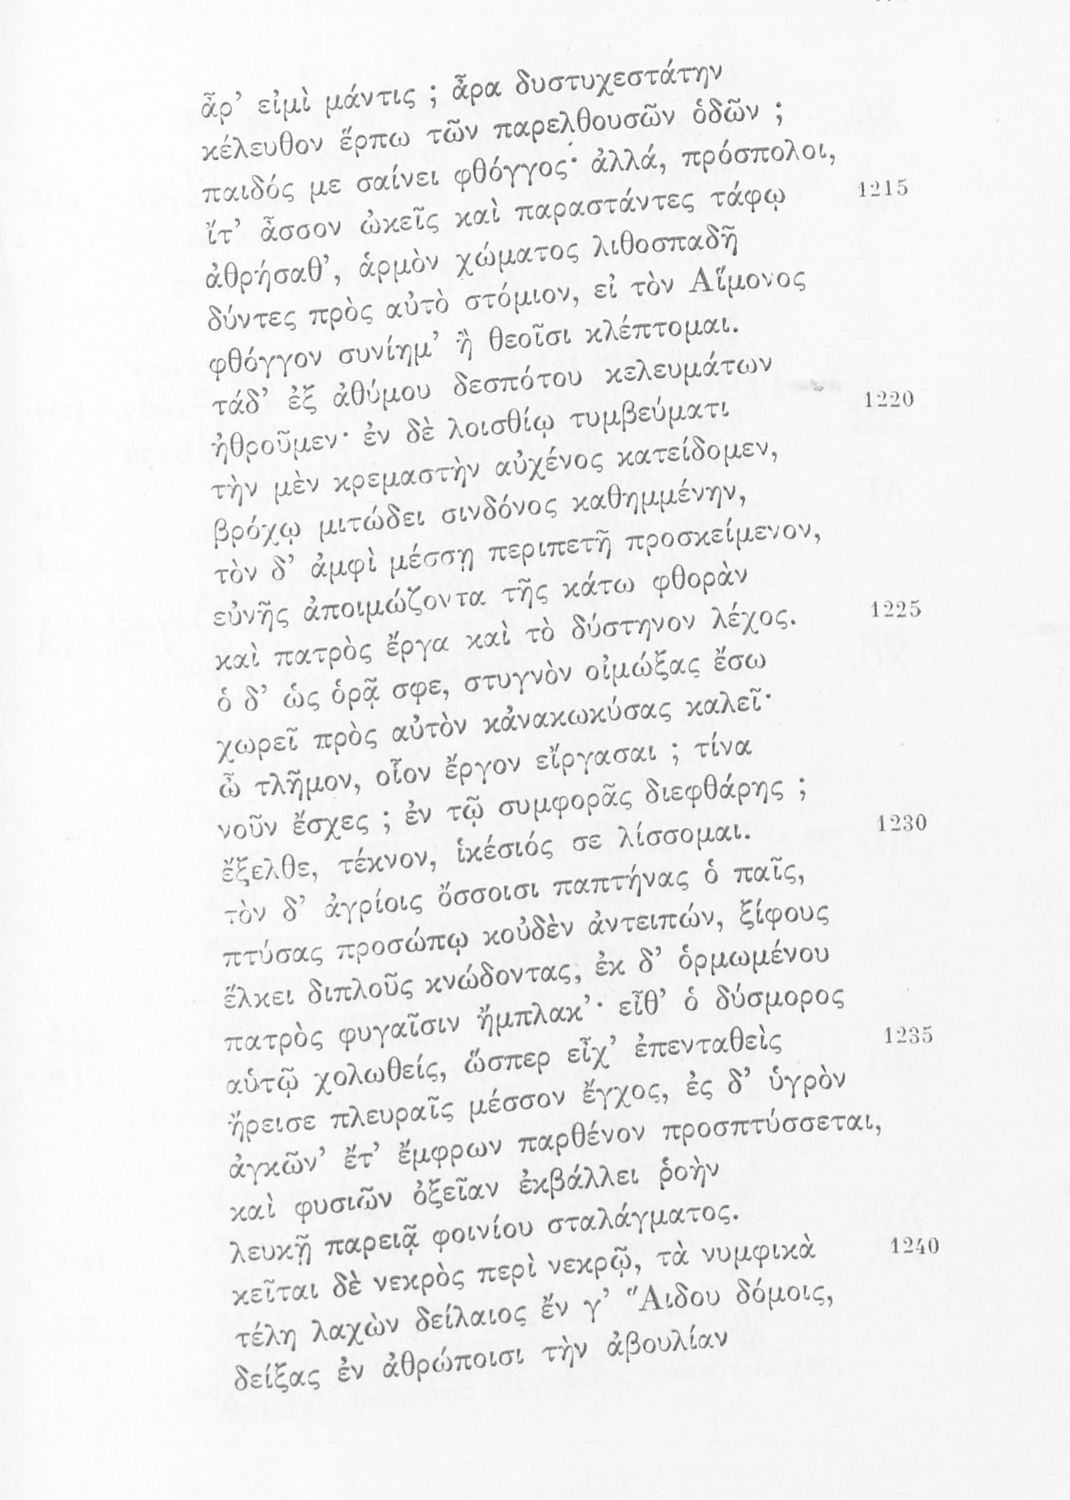 ἆρ’ εἰμὶ μάντις ; ἆρα δυστυχεστάτην
κέλευθον ἕρπω τῶν παρελθουσῶν ὁδῶν ;
παιδός με σαίνει φθόγγος· ἀλλά, πρόσπολοι,
ἴτ’ ἆσσον ὠκεῖς καὶ παραστάντες τάφῳ 1215
ἀθρήσαθ’, ἁρμὸν χώματος λιθοσπαδῆ
δύντες πρὸς αὐτὸ στόμιον, εἰ τὸν Αἵμονος
φθόγγον συνίημ’ ἢ θεοῖσι κλέπτομαι.
τάδ’ ἐξ ἀθύμου δεσπότου κελευμάτων
ἠθροῦμεν· ἐν δὲ λοισθίῳ τυμβεύματι 1220
τὴν μὲν κρεμαστὴν αὐχένος κατείδομεν,
βρόχῳ μιτώδει σινδόνος καθημμένην,
τὸν δ’ ἀμφὶ μέσσῃ περιπετῆ προσκείμενον,
εὐνῆς ἀποιμώζοντα τῆς κάτω φθορὰν
καὶ πατρὸς ἔργα καὶ τὸ δύστηνον λέχος. 1225
ὁ δ’ ὡς ὁρᾷ σφε, στυγνὸν οἰμώξας ἔσω
χωρεῖ πρὸς αὐτὸν κἀνακωκύσας καλεῖ·
ὦ τλῆμον, οἷον ἔργον εἴργασαι ; τίνα
νοῦν ἔσχες ; ἐν τῷ συμφορᾶς διεφθάρης ;
ἔξελθε, τέκνον, ἱκέσιός σε λίσσομαι. 1230
τὸν δ’ ἀγρίοις ὄσσοισι παπτήνας ὁ παῖς,
πτύσας προσώπῳ κοὐδὲν ἀντειπών, ξίφους
ἕλκει διπλοῦς κνώδοντας, ἐκ δ’ ὁρμωμένου
πατρὸς φυγαῖσιν ἤμπλακ’· εἶθ’ ὁ δύσμορος
αὑτῷ χολωθείς, ὥσπερ εἶχ’ ἐπενταθεὶς 1235
ἤρεισε πλευραῖς μέσσον ἔγχος, ἐς δ’ ὑγρὸν
ἀγκῶν’ ἔτ’ ἔμφρων παρθένον προσπτύσσεται,
καὶ φυσιῶν ὀξεῖαν ἐκβάλλει ῥοὴν
λευκῇ παρειᾷ φοινίου σταλάγματος.
κεῖται δὲ νεκρὸς περὶ νεκρῷ, τὰ νυμφικὰ 1240
τέλη λαχὼν δείλαιος ἔν γ’ Ἅιδου δόμοις,
δείξας ἐν ἀθρώποισι τὴν ἀβουλίαν